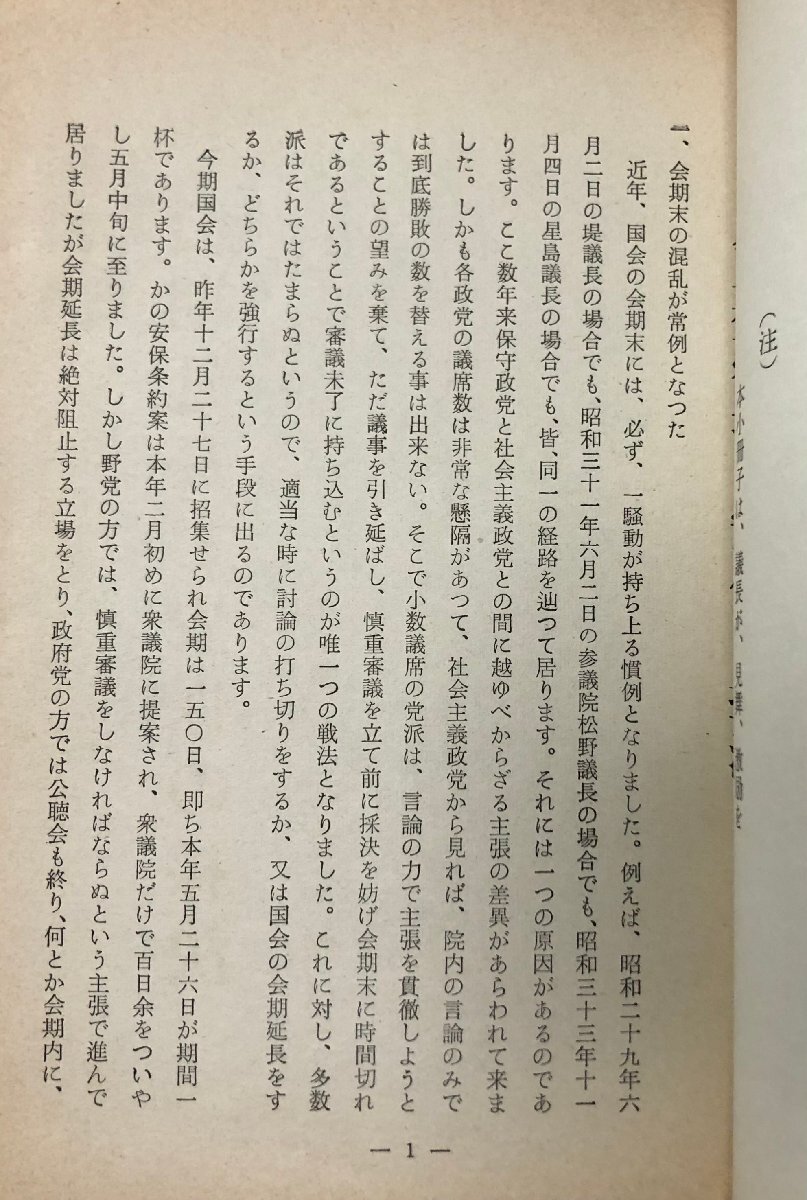 (注)
本小冊子は、議長が、
一、会期末の混乱が常例となつた
近年、国会の会期末には、必ず、一騒動が持ち上る慣例となりました。例えば、昭和二十九年六
月二日の堤議長の場合でも、昭和三十一年六月二日の参議院松野議長の場合でも、昭和三十三年十一
月四日の星島議長の場合でも、皆、同一の経路を辿つて居ります。それには一つの原因があるのであ
ります。ここ数年来保守政党と社会主義政党との間に越ゆべからざる主張の差異があらわれて来ま
した。しかも各政党の議席数は非常な懸隔があつて、社会主義政党から見れば、院内の言論のみで
は到底勝敗の数を替える事は出来ない。そこで小数議席の党派は、言論の力で主張を貫徹しようと
することの望みを棄て、ただ議事を引き延ばし、慎重審議を立て前に採決を妨げ会期末に時間切れ
であるということで審議未了に持ち込むというのが唯一つの戦法となりました。これに対し、多数
派はそれではたまらぬというので、適当な時に討論の打ち切りをするか、又は国会の会期延長をす
るか、どちらかを強行するという手段に出るのであります。
今期国会は、昨年十二月二十七日に招集せられ会期は一五〇日、即ち本年五月二十六日が期間一
杯であります。かの安保条約案は本年二月初めに衆議院に提案され、衆議院だけで百日余をついや
し五月中旬に至りました。しかし野党の方では、慎重審議をしなければならぬという主張で進んで
居りましたが会期延長は絶対阻止する立場をとり、政府党の方では公聴会も終り、何とか会期内に、
— 1 —